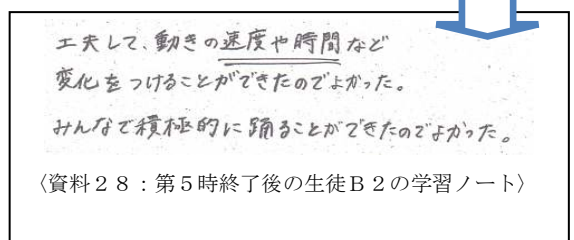 工夫して、動きの速度や時間など
変化をつけることができたのでよかった。
みんなで積極的に踊ることができたのでよかった。
〈資料28：第5時終了後の生徒B2の学習ノート〉